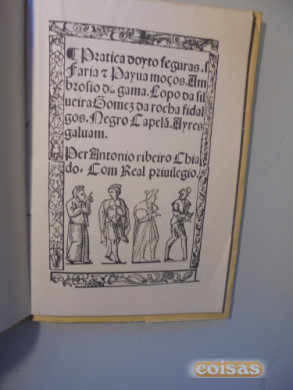 ¶ Pratica doyto feguras. s
Faria ⁊ Payua moços. Am
brosio da gama. Lopo da sil
ueira Gomez da rocha fidal
gos. Negro Capelã. Ayres
galuam.
Per Antonio ribeiro Chia
do. Com Real priuilegio.
coisas